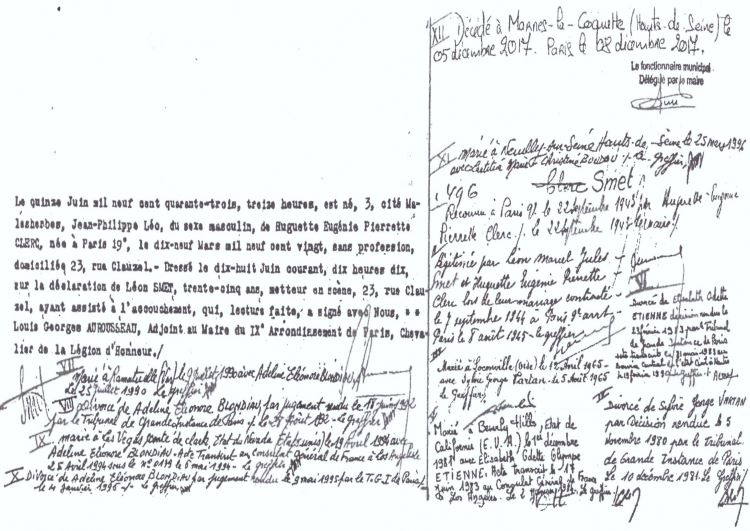 Le quinze Juin mil neuf cent quarante-trois, treize heures, est né, 3, cité Ma-
lesherbes, Jean-Philippe Léo, du sexe masculin, de Huguette Eugénie Pierrette
CLERC, née à Paris 19°, le dix-neuf Mars mil neuf cent vingt, sans profession,
domiciliée 23, rue Clauzel.- Dressé le dix-huit Juin courant, dix heures dix,
sur la déclaration de Léon SMET, trente-cinq ans, metteur en scène, 23, rue Clau
zel, ayant assisté à l'accouchement, qui, lecture faite, a signé avec Nous,
Louis Georges AUROUSSEAU, Adjoint au Maire du IX° Arrondissement de Paris, Cheva-
lier de la Légion d'Honneur./
VII
Marié à Ramatuelle le 9 juillet 1990 avec Adeline Eléonore BLONDIAU
le 25 juillet 1990 Le greffier
VIII Divorcé de Adeline Eléonore BLONDIAU par jugement rendu le 1992
par le Tribunal de Grande Instance de Paris le 24 Août 1992 - Le greffier
IX marié à Las Vegas, comté de Clark, Etat du Nevada (Etats unis) le 19 Avril 1994 avec
Adeline Eléonore BLONDIAU - Acte Transcrit au consulat général de France à Los Angeles
25 Avril 1994 sous le N° 6 mai 1994 - Le greffier
X Divorcé de Adeline Eléonore BLONDIAU par jugement rendu le 9 mai 1995 par le T.G.I de Paris
le 4 janvier 1996 - Le greffier
XII Décédé à Marnes-la-Coquette (Hauts-de-Seine) le
05 décembre 2017. Paris le 08 décembre 2017.
Le fonctionnaire municipal
Délégué par le maire
XI Marié à Neuilly-sur-Seine Hauts-de-Seine le 25 mars 1996
avec Laetitia Marie Christine BOUDOU
496 Clerc Smet
Reconnu à Paris 9e le 22 septembre 1943 par Huguette Eugénie
Pierrette Clerc. / 22 septembre 1943
Légitimé par Léon Marcel Jules
Smet et Huguette Eugénie Pierrette
Clerc lors de leur mariage contracté
le 7 septembre 1944 à Paris 9e arrt
Paris le 8 août 1945 - Le greffier
III
Marié à Loconville (Oise) le 12 Avril 1965
avec Sylvie Jorge Vartan. le 5 Août 1965
Le greffier
Marié à Beverly-Hills, Etat de
Californie (E.U.A) le 1er décembre
1981 avec Elisabeth Odette Olympe
ETIENNE. Acte transcrit le
1983 au Consulat Général de France
à Los Angeles.
VI
Divorcé de Elisabeth Odette
ETIENNE
par Tribunal
de Grande Instance de Paris
Divorcé de Sylvie Jorge VARTAN
par Décision rendue le 5
novembre 1980 par le Tribunal
de Grande Instance de Paris
le 10 décembre 1981. Le Greffier